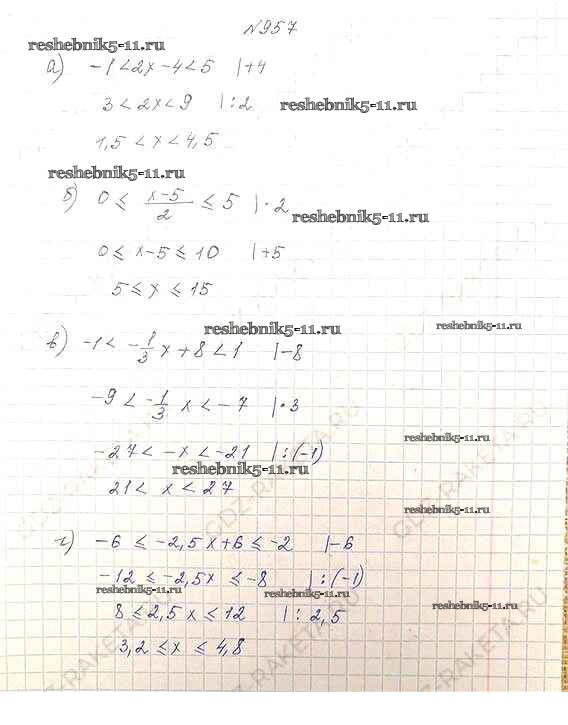 №957
reshebnik5-11.ru
а) -1<2x-4<5 |+4
3<2x<9 |:2
reshebnik5-11.ru
1,5<x<4,5
reshebnik5-11.ru
б) 0 ≤ (x-5)/2 ≤ 5 |·2
reshebnik5-11.ru
0 ≤ x-5 ≤ 10 |+5
5 ≤ x ≤ 15
reshebnik5-11.ru
reshebnik5-11.ru
в) -1 < -1/3 x + 8 < 1 |-8
-9 < -1/3 x < -7 |·3
reshebnik5-11.ru
-27 < -x < -21 |:(-1)
reshebnik5-11.ru
21 < x < 27
reshebnik5-11.ru
г) -6 ≤ -2,5x+6 ≤ -2 |-6
-12 ≤ -2,5x ≤ -8 |:(-1)
reshebnik5-11.ru
reshebnik5-11.ru
reshebnik5-11.ru
8 ≤ 2,5x ≤ 12 |:2,5
3,2 ≤ x ≤ 4,8
GDZ-RAKETA.RU
GDZ-RAKETA.RU
GDZ-RAKETA.RU
GDZ-RAKETA.RU